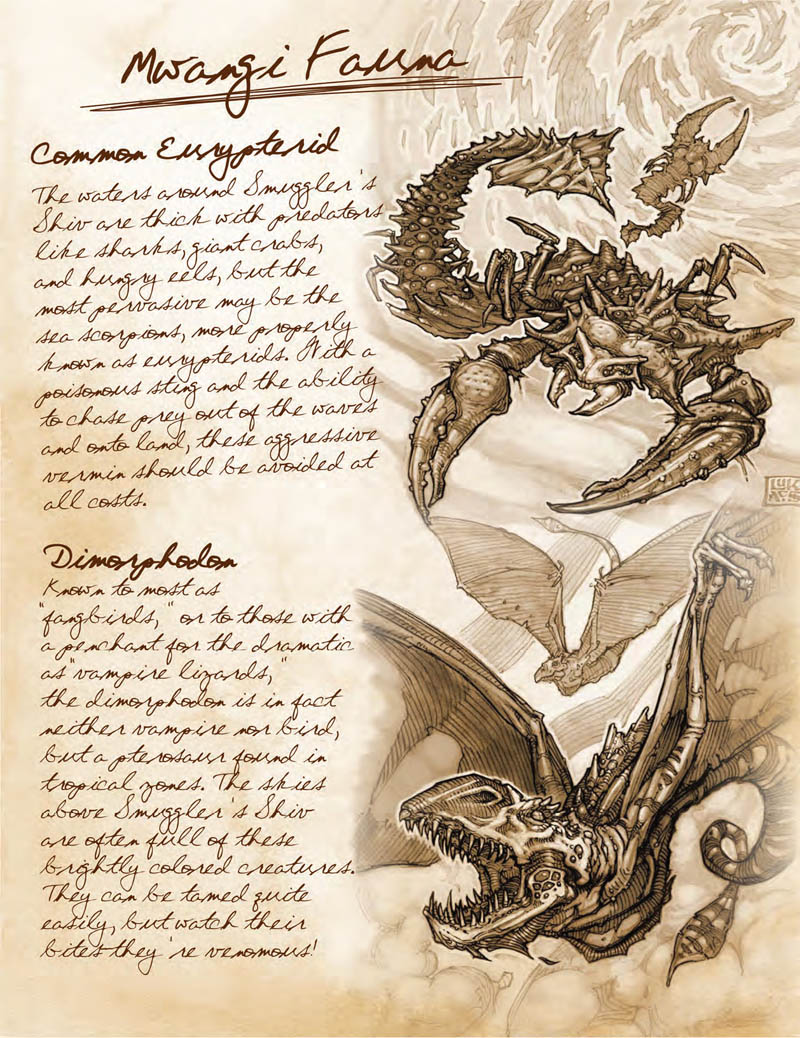 Mwangi Fauna
Common Eurypterid
The waters around Smuggler's
Shiv are thick with predators
like sharks, giant crabs,
and hungry eels, but the
most pervasive may be the
sea scorpions, more properly
known as eurypterids. With a
poisonous sting and the ability
to chase prey out of the waves
and onto land, these aggressive
vermin should be avoided at
all costs.
Dimorphodon
Known to most as
"fangbirds," or to those with
a penchant for the dramatic
as "vampire lizards,"
the dimorphodon is in fact
neither vampire nor bird,
but a pterosaur found in
tropical zones. The skies
above Smuggler's Shiv
are often full of these
brightly colored creatures.
They can be tamed quite
easily, but watch their
bites they're venomous!